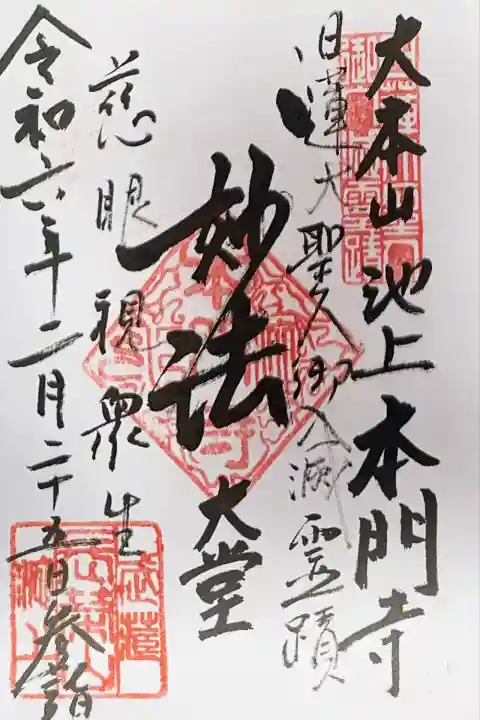 大本山 池上 本門寺
日蓮大聖人御入滅霊蹟
妙法
大堂
慈眼視衆生
令和六年二月二十五日参詣